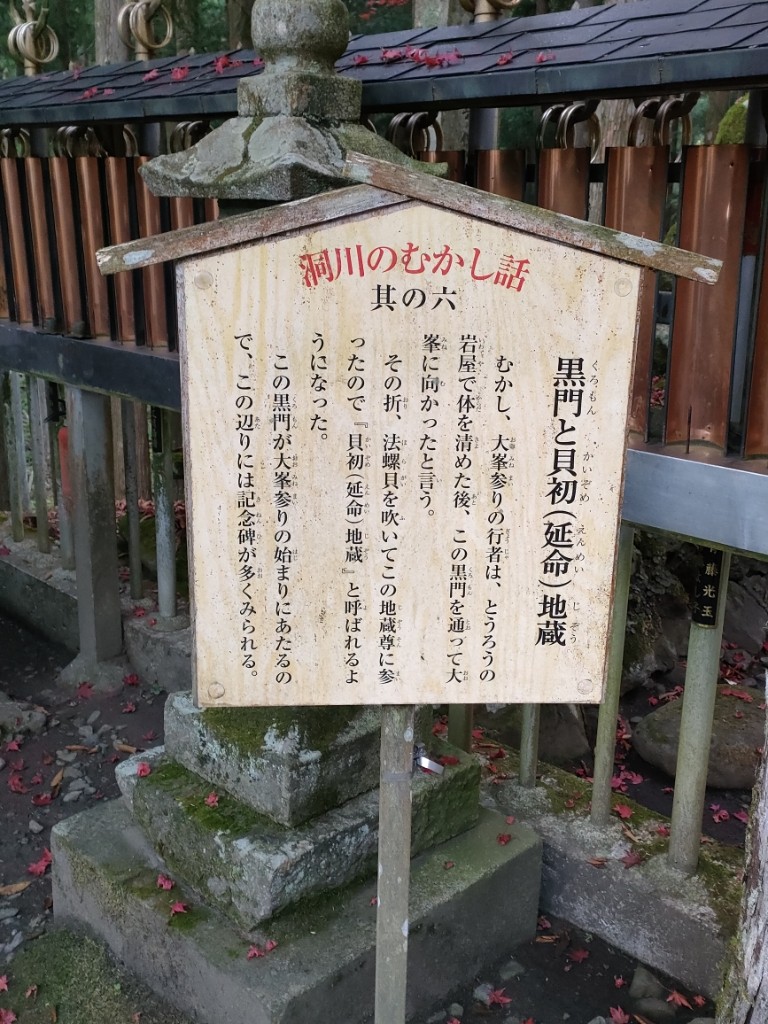 洞川のむかし話
其の六
黒門と貝初(延命)地蔵
むかし、大峯参りの行者は、とうろうの
岩屋で体を清めた後、この黒門を通って大
峯に向かったと言う。
その折、法螺貝を吹いてこの地蔵尊に参
ったので『貝初(延命)地蔵』と呼ばれるよ
うになった。
この黒門が大峯参りの始まりにあたるの
で、この辺りには記念碑が多くみられる。
藤光玉